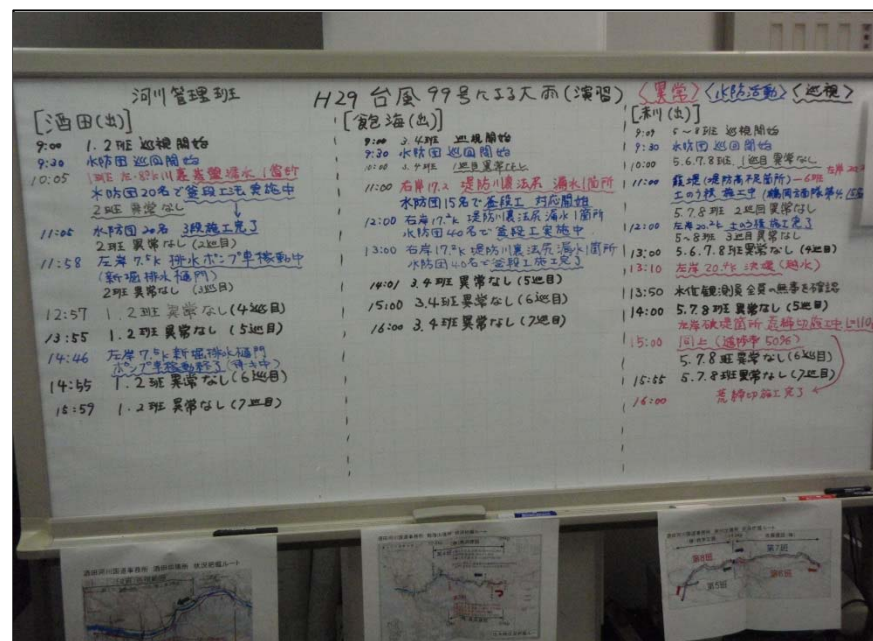 河川管理班
H29 台風99号による大雨(演習)
<異常> <水防活動> <巡視>
[酒田(出)]
9:00 1.2班 巡視開始
9:30 水防団 巡回開始
10:05 1班 左
漏水1箇所
水防団20名で釜段工法実施中
2班 異常なし
11:05 水防団20名 3段施工完了
2班 異常なし(2巡目)
11:58 左岸7.5k 排水ポンプ車稼動中
(新堀排水樋門)
2班 異常なし(3巡目)
12:57 1.2班 異常なし(4巡目)
13:55 1.2班 異常なし(5巡目)
14:46 左岸7.5k新堀排水樋門
ポンプ車稼動終了
14:55 1.2班 異常なし(6巡目)
15:59 1.2班 異常なし(7巡目)
[飽海(出)]
9:00 3.4班 巡視開始
9:30 水防団 巡回開始
10:00 3.4班 1巡目異常なし
11:00 右岸17.2 堤防川裏法尻 漏水1箇所
水防団15名で釜段工 対応開始
12:00 右岸17.2k 堤防川裏法尻漏水1箇所
水防団40名で釜段工実施中
13:00 右岸17.2k堤防川裏法尻漏水1箇所
水防団40名で釜段工施工完了
14:01 3.4班 異常なし(5巡目)
15:00 3.4班 異常なし(6巡目)
16:00 3.4班 異常なし(7巡目)
[赤川(出)]
9:09 5~8班 巡視開始
9:30 水防団 巡回開始
10:00 5.6.7.8班 1巡目 異常なし
11:00 霞堤(堤防高不足箇所)-6班 左岸
土のう積 施工中
5.7.8班 2巡目異常なし
12:00 左岸20.2k 土のう積施工完了
5~8班 3巡目異常なし
13:00 5.6.7.8班 異常なし(4巡目)
13:10 左岸20.4k 決壊(越水)
13:50 水位観測員全員の無事を確認
14:00 5.7.8班 異常なし(5巡目)
左岸破堤箇所 荒締切施工中 L=110
15:00 同上(進捗率50%)
5.7.8班 異常なし(6巡目)
15:55 5.7.8班 異常なし(7巡目)
16:00 荒締切施工完了
酒田河川国道事務所 酒田出張所 状況把握ルート
酒田河川国道事務所 飽海出張所 状況把握ルート
酒田河川国道事務所 赤川出張所 状況把握ルート
第8班
第7班
第5班
第6班